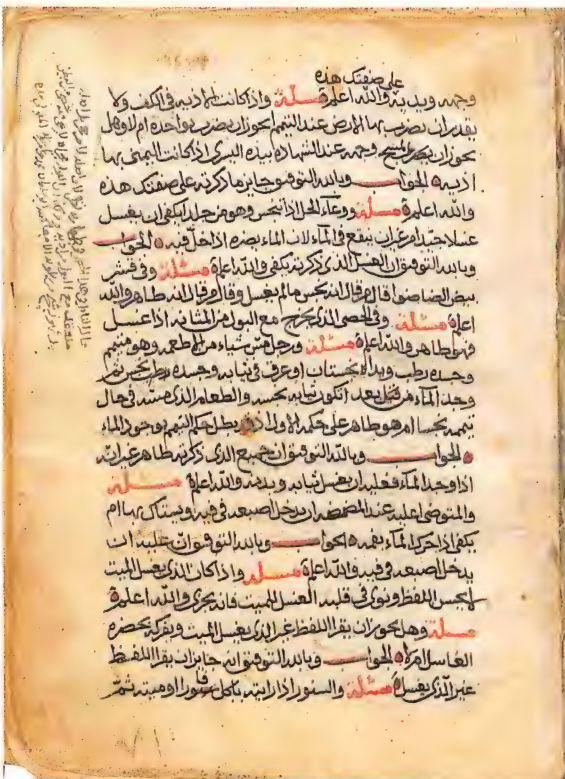 على صفتك هذه
وجهه ويديه والله اعلم مسئلة واذا كانت الاذيه في الكف ولا
يقدر ان يضرب بها الارض عند التيمم ايجوز ان يضرب بواحدة ام لا وهل
يجوز ان يمسح وجهه عند الشهاده بيده اليسرى اذا كانت اليمنى بها
اذيه الجواب وبالله التوفيق جايز ما ذكرته على صفتك هذه
والله اعلم مسئلة ووعاء الخل اذا تنجس وهو من جلد ايكفي ان يغسل
غسلا جيدا من غير ان ينقع في الماء لان الماء يضره اذا خلي فيه الجواب
وبالله التوفيق ان الغسل الذي ذكرته يكفي والله اعلم مسئلة وفي قشر
بيض الضاضوا قال من قال انه نجس ما لم يغسل وقال من قال انه طاهر والله
اعلم مسئلة وفي الحصى الذي يخرج مع البول من المثانه اذا غسل
فهو طاهر والله اعلم مسئلة ورجل مس شياء من الاطعمه وهو متيمم
وجسده رطب ويداه نجستان او عرق في ثيابه وجسده نجس ثم
وجد الماء من قبل بعد اتكون ثيابه نجسه والطعام الذي مسه في حال
تيممه نجسا ام هو طاهر على حكمه الاول اذ بطل حكم التيمم بوجود الماء
الجواب وبالله التوفيق ان جميع الذي ذكرته طاهر غير انه
اذا وجد الماء فعليه ان يغسل ثيابه وبدنه والله اعلم مسئلة
والمتوضي اعليه عند المضمضه ان يدخل اصبعه في فيه ويستاك بها ام
يكفي اذا حرك الماء بفمه الجواب وبالله التوفيق ان عليه ان
يدخل اصبعه في فيه والله اعلم مسئله واذا كان الذي يغسل الميت
لا يحسن اللفظ ونوى في قلبه الغسل للميت فانه يجزي والله اعلم
مسئلة وهل يجوز ان يقرا اللفظ غير الذي يغسل الميت ويقر به بحضرة
الغاسل ام لا الجواب وبالله التوفيق انه جايز ان يقرا اللفظ
غير الذي يغسله مسئلة والسنور اذا رايته ياكل فارا او ميته ثم